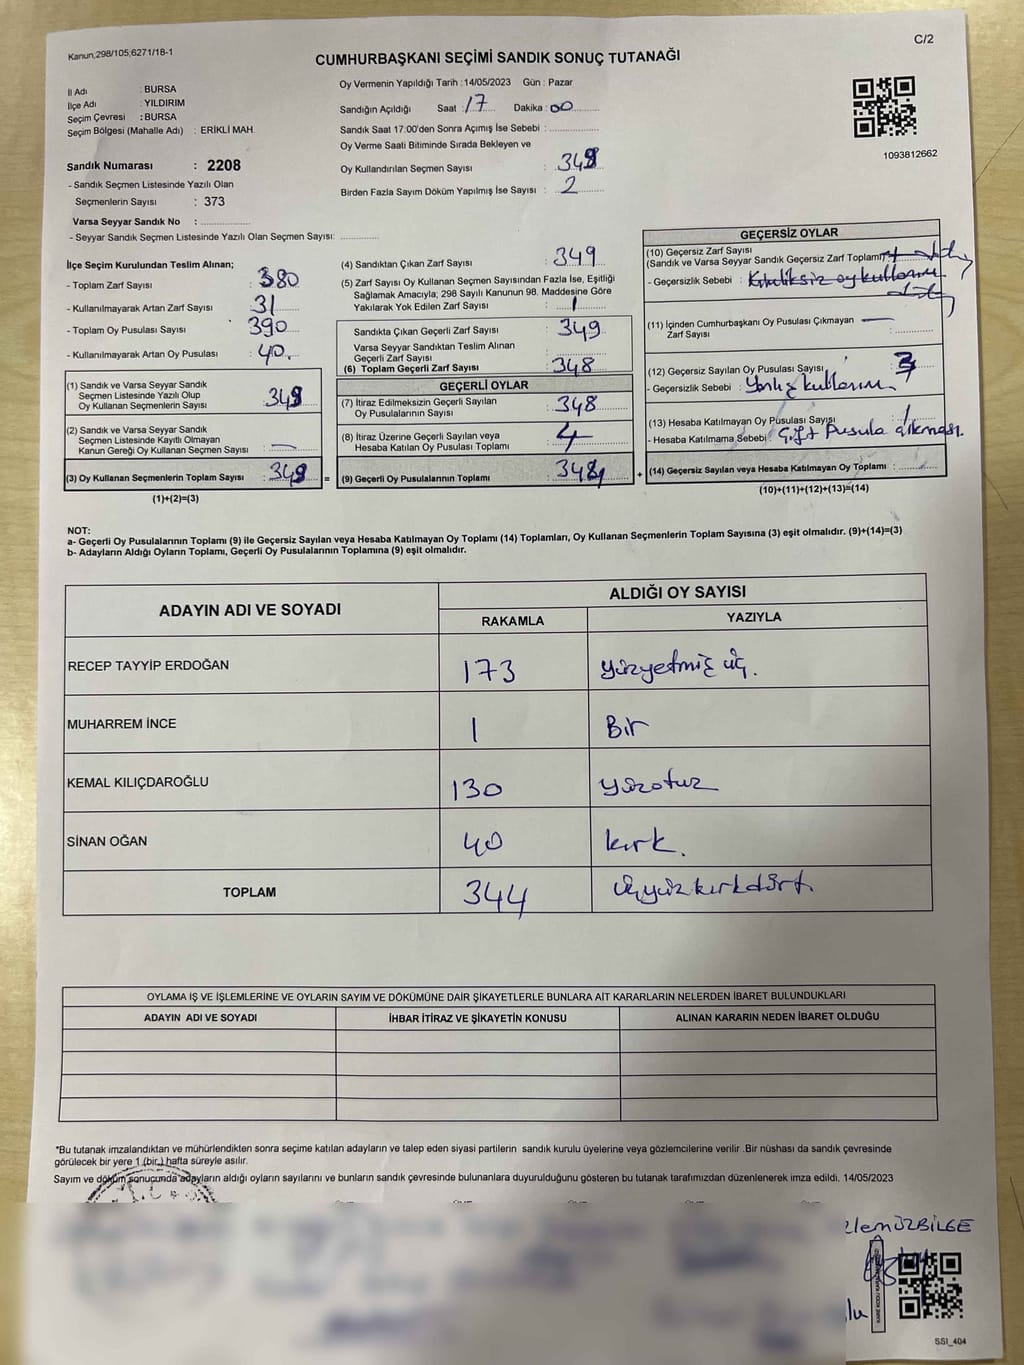 Kanun,298/105,6271/18-1
C/2
CUMHURBAŞKANI SEÇİMİ SANDIK SONUÇ TUTANAĞI
İl Adı : BURSA
İlçe Adı : YILDIRIM
Seçim Çevresi : BURSA
Seçim Bölgesi (Mahalle Adı) : ERİKLİ MAH.
Sandık Numarası : 2208
- Sandık Seçmen Listesinde Yazılı Olan
Seçmenlerin Sayısı : 373
Varsa Seyyar Sandık No :
- Seyyar Sandık Seçmen Listesinde Yazılı Olan Seçmen Sayısı:
Oy Vermenin Yapıldığı Tarih : 14/05/2023 Gün : Pazar
Sandığın Açıldığı Saat : 17 Dakika : 00
Sandık Saat 17:00'den Sonra Açımış İse Sebebi :
Oy Verme Saati Bitiminde Sırada Bekleyen ve
Oy Kullandırılan Seçmen Sayısı : 349
Birden Fazla Sayım Döküm Yapılmış İse Sayısı : 2
1093812662
İlçe Seçim Kurulundan Teslim Alınan;
- Toplam Zarf Sayısı : 380
- Kullanılmayarak Artan Zarf Sayısı : 31
- Toplam Oy Pusulası Sayısı : 390
- Kullanılmayarak Artan Oy Pusulası : 40.
(1) Sandık ve Varsa Seyyar Sandık
Seçmen Listesinde Yazılı Olup
Oy Kullanan Seçmenlerin Sayısı : 349
(2) Sandık ve Varsa Seyyar Sandık
Seçmen Listesinde Kayıtlı Olmayan
Kanun Gereği Oy Kullanan Seçmen Sayısı : —
(3) Oy Kullanan Seçmenlerin Toplam Sayısı : 349
(1)+(2)=(3)
(4) Sandıktan Çıkan Zarf Sayısı : 349
(5) Zarf Sayısı Oy Kullanan Seçmen Sayısından Fazla İse, Eşitliği
Sağlamak Amacıyla; 298 Sayılı Kanunun 98. Maddesine Göre
Yakılarak Yok Edilen Zarf Sayısı : 1
Sandıkta Çıkan Geçerli Zarf Sayısı : 349
Varsa Seyyar Sandıktan Teslim Alınan
Geçerli Zarf Sayısı
(6) Toplam Geçerli Zarf Sayısı : 348
GEÇERLİ OYLAR
(7) İtiraz Edilmeksizin Geçerli Sayılan
Oy Pusulalarının Sayısı : 348
(8) İtiraz Üzerine Geçerli Sayılan veya
Hesaba Katılan Oy Pusulası Toplamı : 4
(9) Geçerli Oy Pusulalarının Toplamı :
GEÇERSİZ OYLAR
(10) Geçersiz Zarf Sayısı
(Sandık ve Varsa Seyyar Sandık Geçersiz Zarf Toplamı)
- Geçersizlik Sebebi : Kimliksiz oy kullanımı
(11) İçinden Cumhurbaşkanı Oy Pusulası Çıkmayan —
Zarf Sayısı
(12) Geçersiz Sayılan Oy Pusulası Sayısı : 3
- Geçersizlik Sebebi : Yanlış kullanım.
(13) Hesaba Katılmayan Oy Pusulası Sayısı 1
- Hesaba Katılmama Sebebi : Çift Pusula çıkması.
(14) Geçersiz Sayılan veya Hesaba Katılmayan Oy Toplamı :
(10)+(11)+(12)+(13)=(14)
NOT:
a- Geçerli Oy Pusulalarının Toplamı (9) ile Geçersiz Sayılan veya Hesaba Katılmayan Oy Toplamı (14) Toplamları, Oy Kullanan Seçmenlerin Toplam Sayısına (3) eşit olmalıdır. (9)+(14)=(3)
b- Adayların Aldığı Oyların Toplamı, Geçerli Oy Pusulalarının Toplamına (9) eşit olmalıdır.
ADAYIN ADI VE SOYADI
ALDIĞI OY SAYISI
RAKAMLA YAZIYLA
RECEP TAYYİP ERDOĞAN 173 yüzyetmiş üç.
MUHARREM İNCE 1 Bir
KEMAL KILIÇDAROĞLU 130 yüzotuz
SİNAN OĞAN 40 kırk.
TOPLAM 344 üçyüzkırkdört.
OYLAMA İŞ VE İŞLEMLERİNE VE OYLARIN SAYIM VE DÖKÜMÜNE DAİR ŞİKAYETLERLE BUNLARA AİT KARARLARIN NELERDEN İBARET BULUNDUKLARI
ADAYIN ADI VE SOYADI İHBAR İTİRAZ VE ŞİKAYETİN KONUSU ALINAN KARARIN NEDEN İBARET OLDUĞU
*Bu tutanak imzalandıktan ve mühürlendikten sonra seçime katılan adayların ve talep eden siyasi partilerin sandık kurulu üyelerine veya gözlemcilerine verilir .Bir nüshası da sandık çevresinde
görülecek bir yere 1 (bir.) hafta süreyle asılır.
Sayım ve döküm sonucunda adayların aldığı oyların sayılarını ve bunların sandık çevresinde bulunanlara duyurulduğunu gösteren bu tutanak tarafımızdan düzenlenerek imza edildi. 14/05/2023
ÖZBİLGE
SSI_404